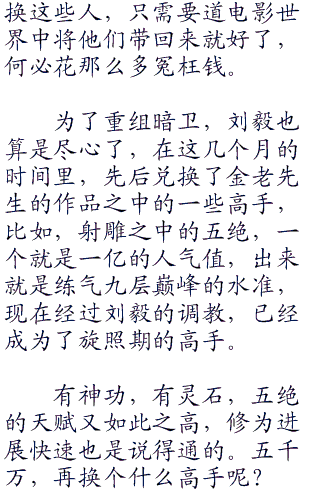 换这些人，只需要道电影世
界中将他们带回来就好了，
何必花那么多冤枉钱。
为了重组暗卫，刘毅也
算是尽心了，在这几个月的
时间里，先后兑换了金老先
生的作品之中的一些高手，
比如，射雕之中的五绝，一
个就是一亿的人气值，出来
就是练气九层巅峰的水准，
现在经过刘毅的调教，已经
成为了旋照期的高手。
有神功，有灵石，五绝
的天赋又如此之高，修为进
展快速也是说得通的。五千
万，再换个什么高手呢？